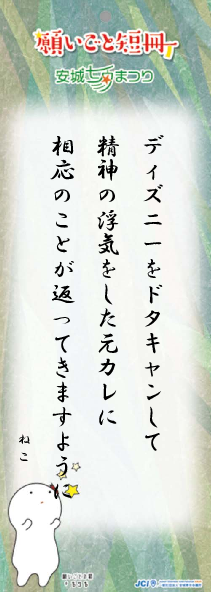 願いごと短冊
安城七夕まつり
ディズニーをドタキャンして
精神の浮気をした元カレに
相応のことが返ってきますように
ねこ
JCI